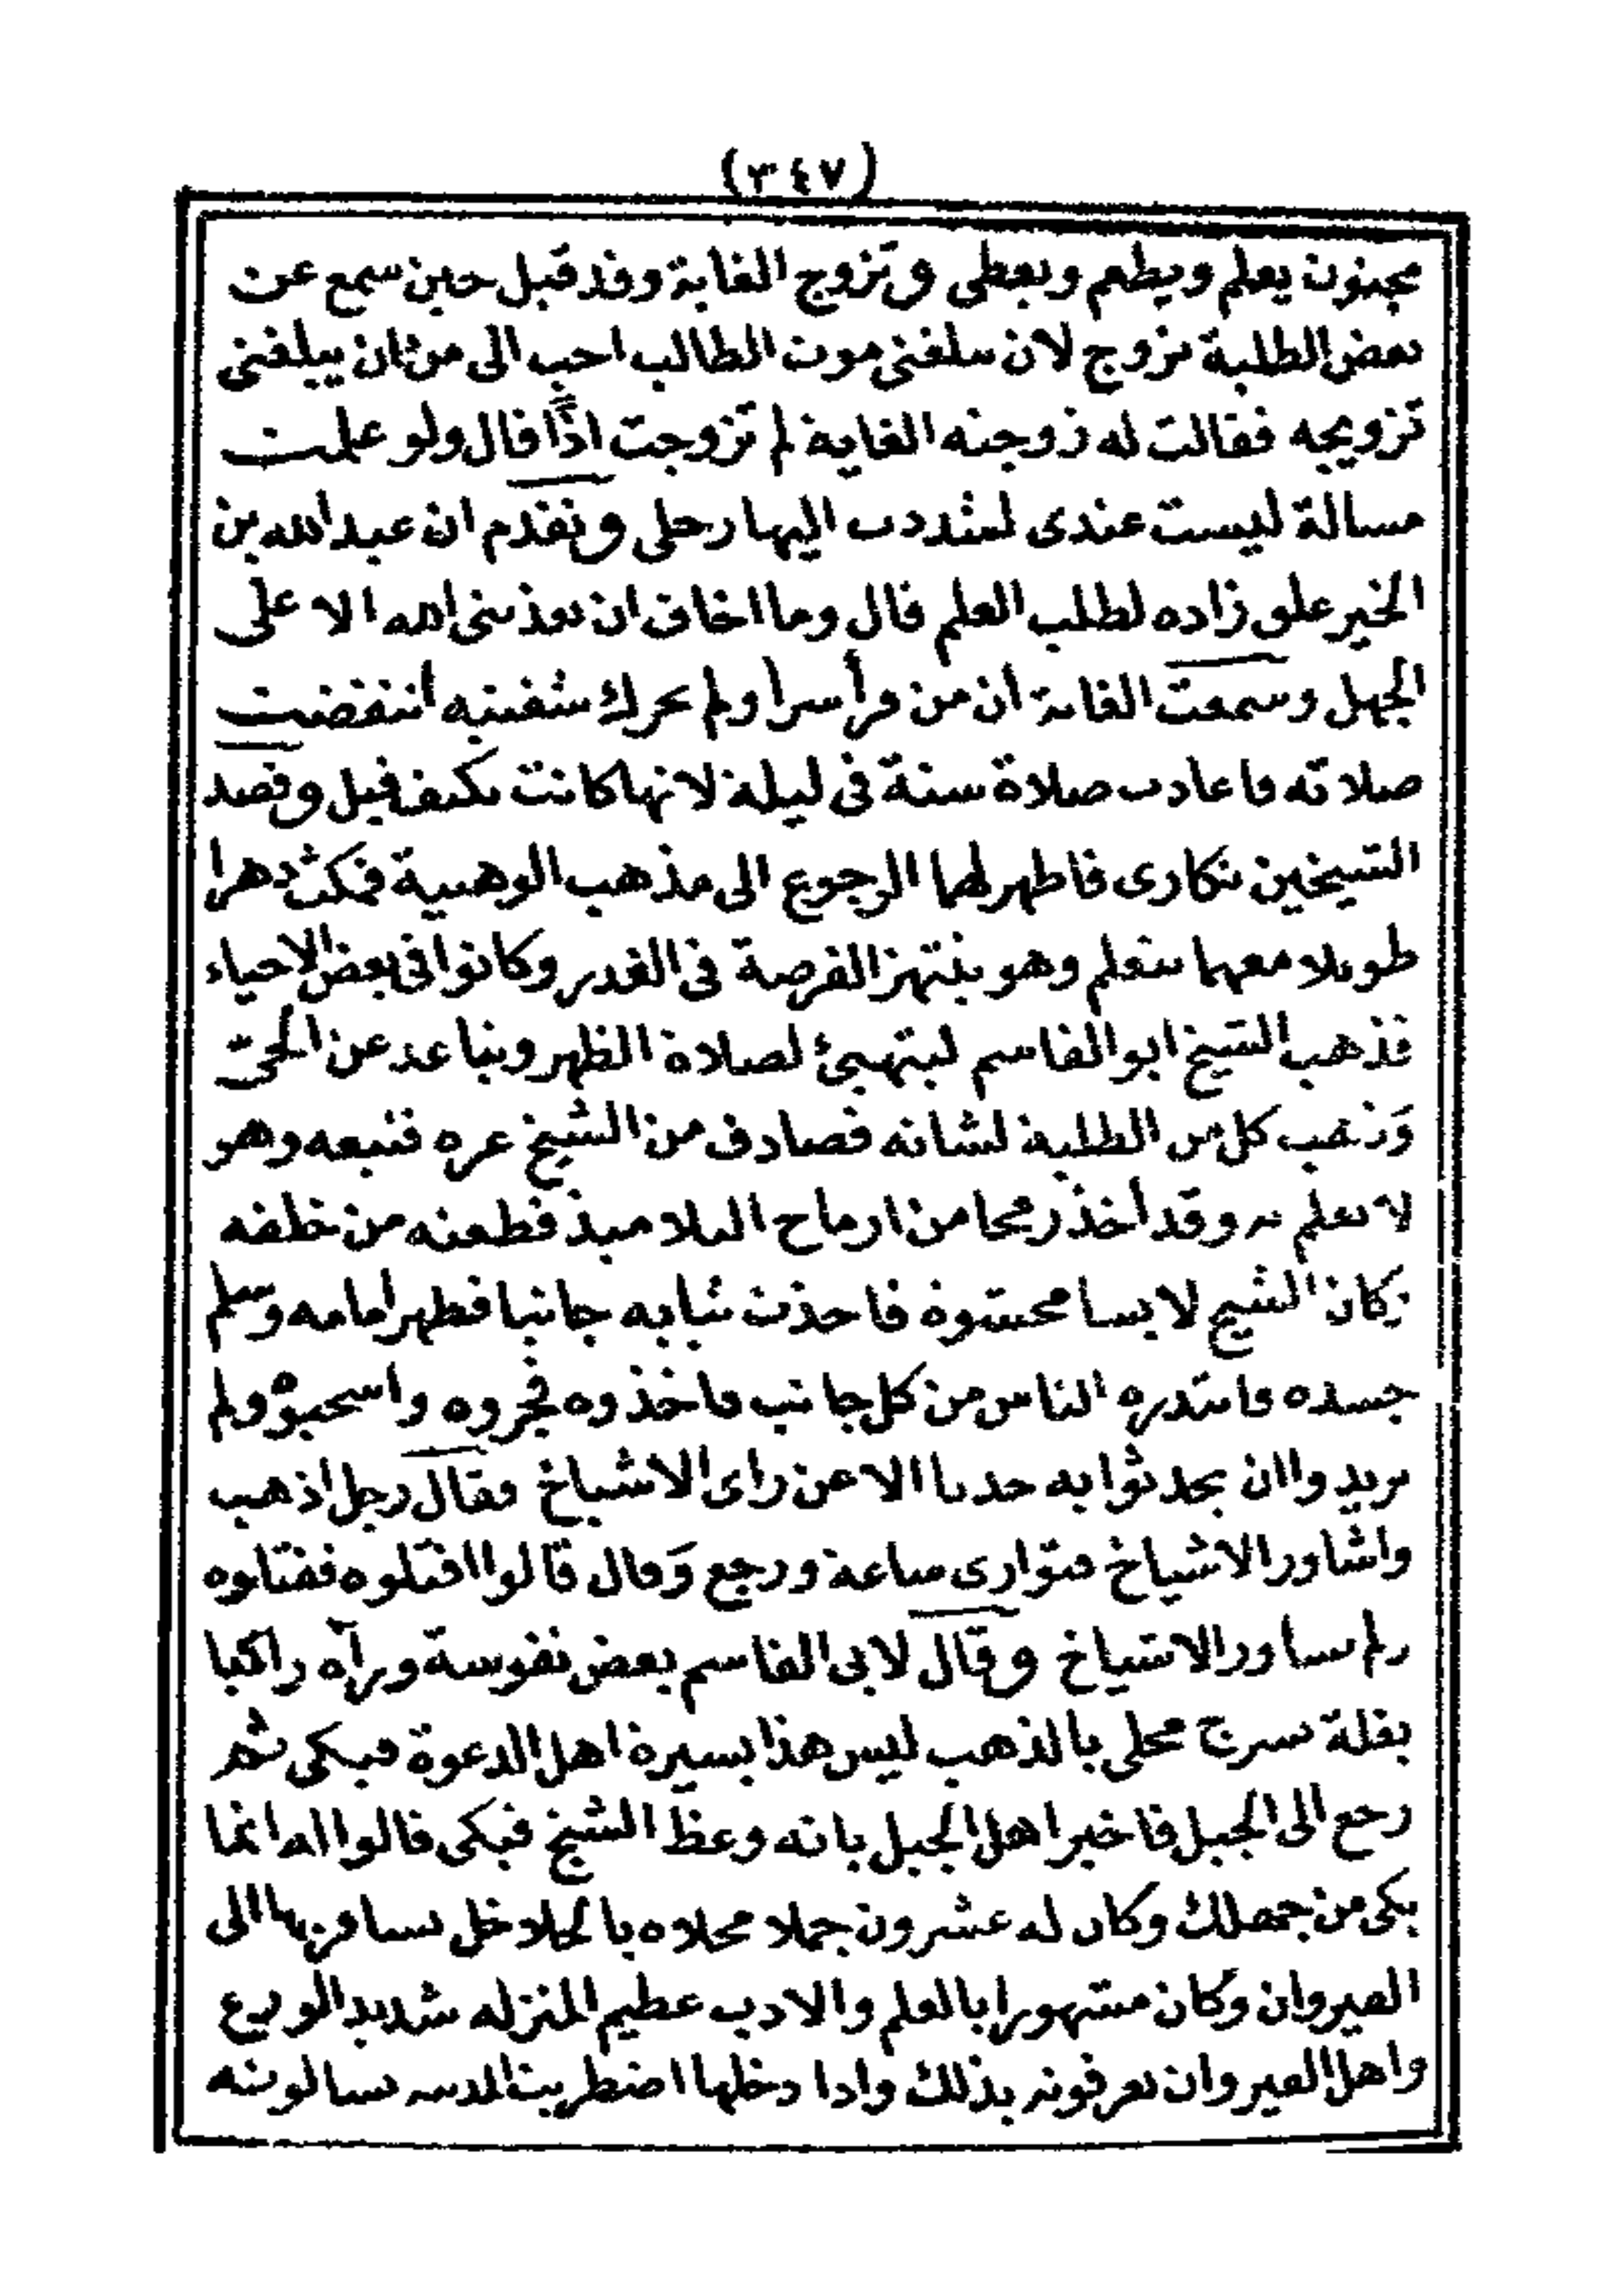 (٣٤٧)
مجنون يعلم ويطعم ويعطى وتزوج الغاية وقد قيل حين سمع عن
بعض الطلبة تزوج لان يبلغنى موت الطالب احب الى من ان يبلغنى
تزويجه فقالت له زوجته الغاية لم تزوجت اذًا قال ولو علمت
مسالة ليست عندى لشددت اليها رحلى وتقدم ان عبد الله بن
الخير علق زاده لطلب العلم قال وما اخاف ان يعذبنى الله الا على
الجهل وسمعت الغاية ان من قرأ سرا ولم يحرك شفتيه أنتقضت
صلاته فاعادت صلاة سنة فى ليلة لانها كانت تكيف قيل وقصد
الشيخين نكارى فاظهر لهما الرجوع الى مذهب الوهبية فمكث دهرا
طويلا معهما يتعلم وهو ينتهز الفرصة فى الغدر وكانوا فى بعض الاحياء
فذهب الشيخ ابو القاسم ليتهيئ لصلاة الظهر ويتباعد عن الحىّ
وَذهب كل من الطلبة لشانه فصادف من الشيخ غره فتبعه وهو
لا يعلم به وقد أخذ رمحا من ارماح التلاميذ فطعنه من خلفه
وكان الشيخ لابسا محشوة فاخذت ثيابه جانبا فظهر امامه وسلم
جسده فابتدره الناس من كل جانب فاخذوه فجروه واسحبوه ولم
يريدوا ان يحدثوا به حدثا الا عن راى الاشياخ فقال رجل اذهب
واشاور الاشياخ فتوارى ساعة ورجع وَقال قالوا اقتلوه فقتلوه
ولم يشاور الاشياخ وقال لابى القاسم بعض نفوسة ورآه راكبا
بغلة بسرج محلى بالذهب ليس هذا بسيرة اهل الدعوة فبكى ثم
رجع الى الجبل فاخبر اهل الجبل بانه وعظ الشيخ فبكى قالوا له انما
بكى من جهلك وكان له عشرون جملا محلاه بالجلاجل يسافر بها الى
القيروان وكان مشهورا بالعلم والادب عظيم المنزله شديد الورع
واهل القيروان يعرفونه بذلك واذا دخلها اضطربت المدينه يسالونه